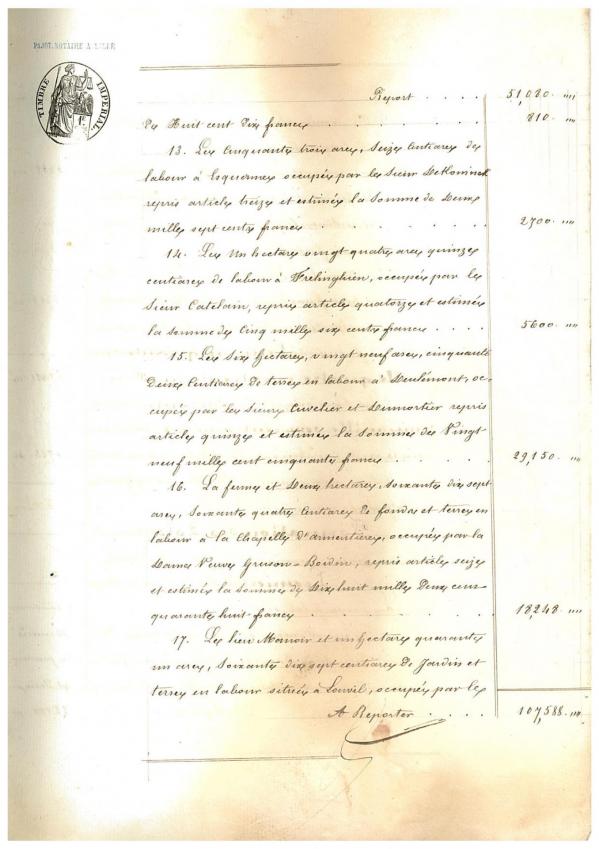 PAJOT, NOTAIRE A LILLE
TIMBRE IMPERIAL
Report . . . . 51,080 "
de Huit cent dix francs 810 "
13. Les Cinquante trois ares, Seize Centiares de
labour à Esquermes occupée par le Sieur
repris article treize et estimée la Somme de Deux
mille sept cents francs . . . . . . 2700 "
14. Les Un hectare vingt quatre ares quinze
centiares de labour à Frelinghien, occupée par le
Sieur Catelain, repris article quatorze et estimée
la somme de Cinq mille six cents francs . . . . 5600 "
15. Les Six hectares, vingt neuf ares, cinquante
Deux Centiares de terres en labour à Deulémont, oc-
cupée par les Sieurs Cuvelier et Dumortier repris
article quinze et estimée la Somme de Vingt
neuf mille cent cinquante francs . . . . 29,150 "
16. La ferme et Deux hectares, soixante dix sept
ares, Soixante quatre Centiares de fonds et terres en
labour à la Chapelle d'armentières, occupée par la
Dame Veuve Gruson-Boidin, repris article seize
et estimée la Somme de Dix huit mille Deux cent
quarante huit francs . . . . . . 18,248 "
17. Le lieu Manoir et un hectare quarante
un ares, Soixante dix sept centiares de Jardin et
terres en labour située à Louvil, occupée par le
A Reporter . . . . 107,588 "